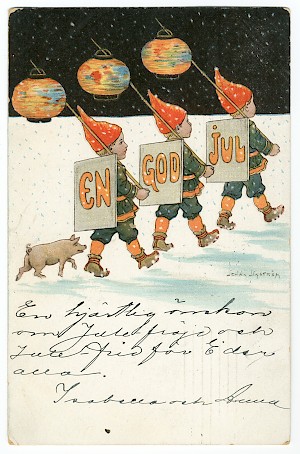 EN GOD JUL
Jenny Nyström
En hjärtlig önskan
om Jule fröjd och
Jule frid för Eder
alla.
Isabella och Anna